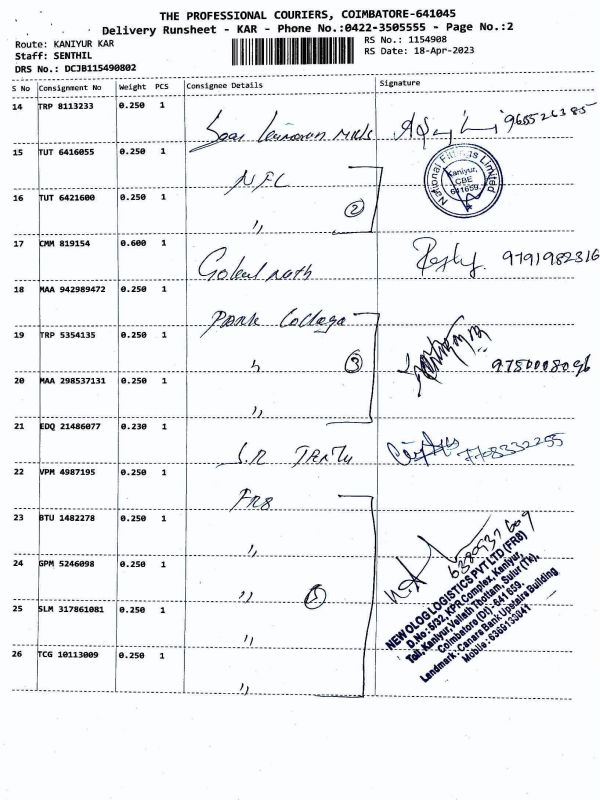 THE PROFESSIONAL COURIERS, COIMBATORE-641045
Delivery Runsheet - KAR - Phone No.:0422-3505555 - Page No.:2
Route: KANIYUR KAR
RS No.: 1154908
Staff: SENTHIL
RS Date: 18-Apr-2023
DRS No.: DCJB115490802
S No Consignment No Weight PCS Consignee Details Signature
14 TRP 8113233 0.250 1
15 TUT 6416055 0.250 1 NFL
National Fittings Limited
Kaniyur,
CBE
641659.
16 TUT 6421600 0.250 1 〃
2
17 CMM 819154 0.600 1 Gokul nath 9791982316
18 MAA 942989472 0.250 1 Park Collage
19 TRP 5354135 0.250 1 〃
3
9750008096
20 MAA 298537131 0.250 1 〃
21 EDQ 21486077 0.230 1 S.R
22 VPM 4987195 0.250 1 FR8
23 BTU 1482278 0.250 1 〃
24 GPM 5246098 0.250 1 〃
5
25 SLM 317861081 0.250 1 〃
26 TCG 10113009 0.250 1 〃
NEW OLOG LOGISTICS PVT LTD (FR8)
D.No: 5/32, KPR Complex, Kaniyur,
Toll, Kaniyur, Vellath Thottam, Sulur (Tk),
Coimbatore (Dt) - 641 659.
Landmark: Canara Bank Upstairs Building
Mobile: 6369133841